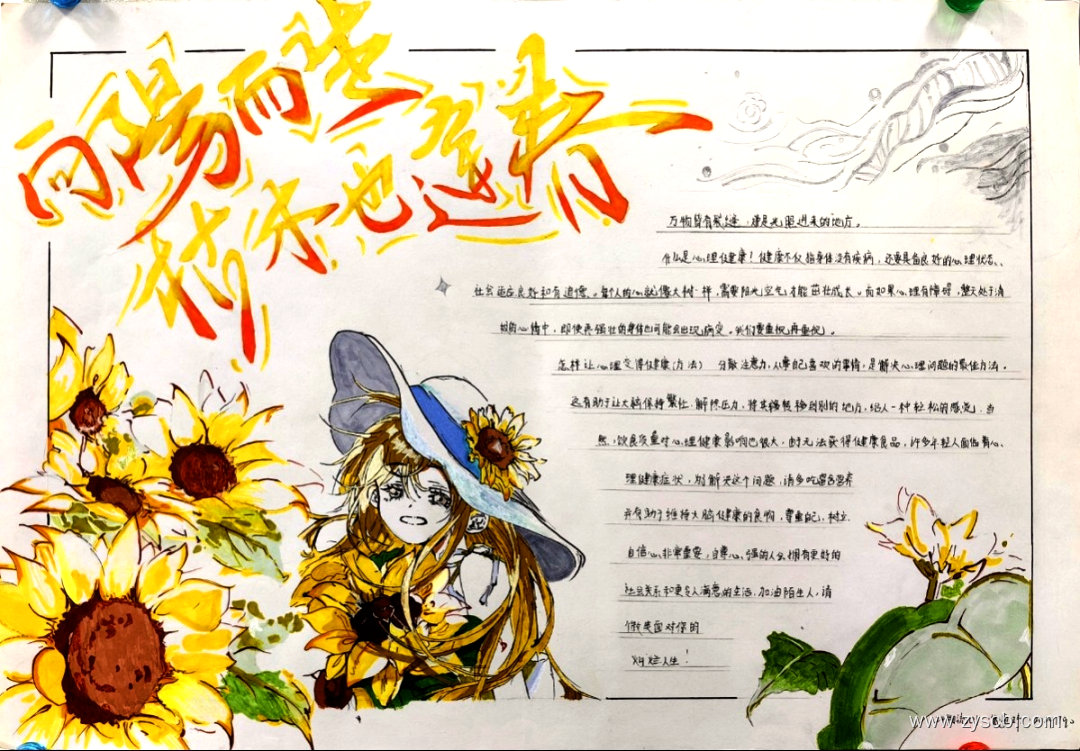 向陽而生
待永也逐春
万物皆有裂缝，那是光照进来的地方。
什么是心理健康！健康不仅指身体没有疾病，还要具备良好的心理状态、
社会适应良好和有道德。每个人的心就像大树一样，需要阳光空气才能茁壮成长。而如果心理有障碍，整天处于消
的心情中，即使再强壮的身体也可能会出现病变。我们要重视再重视。
怎样让心理变得健康(方法) 分散注意力，从事自己喜欢的事情，是解决心理问题的最佳方法。
这有助于让大脑保持繁忙，解释压力，将其转移到别的地方，给人一种轻松的感觉。当
然，饮食质量对心理健康影响也很大，由于无法获得健康食品，许多年轻人面临着心、
理健康症状，别解决这个问题，请多吃富含营养
并有助于维持大脑健康的食物，尊重自己，树立
自信心非常重要，自尊心、强的人会拥有更好的
社会关系和更令人满意的生活。加油陌生人，请
微笑面对你的
灿烂人生！
www.zysab.com